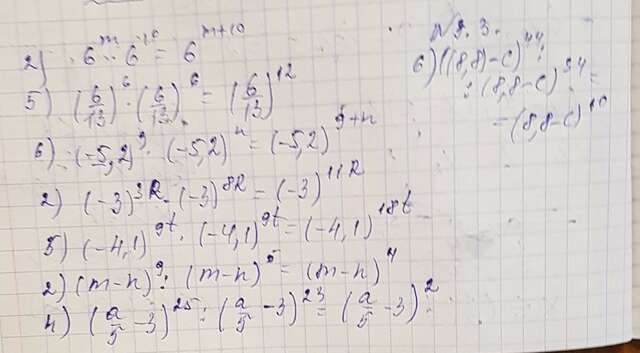 2) 6^m · 6^10 = 6^(m+10)
5) (6/13)^6 · (6/13)^6 = (6/13)^12
6) (-5,2)^9 · (-5,2)^n = (-5,2)^(9+n)
2) (-3)^3k · (-3)^8k = (-3)^11k
5) (-4,1)^9t · (-4,1)^9t = (-4,1)^18t
2) (m-n)^9 : (m-n)^5 = (m-n)^4
4) (a/5 - 3)^25 : (a/5 - 3)^23 = (a/5 - 3)^2
№ 9.3.
6) ((8,8)-c)^44 :
: (8,8-c)^34 =
= (8,8-c)^10